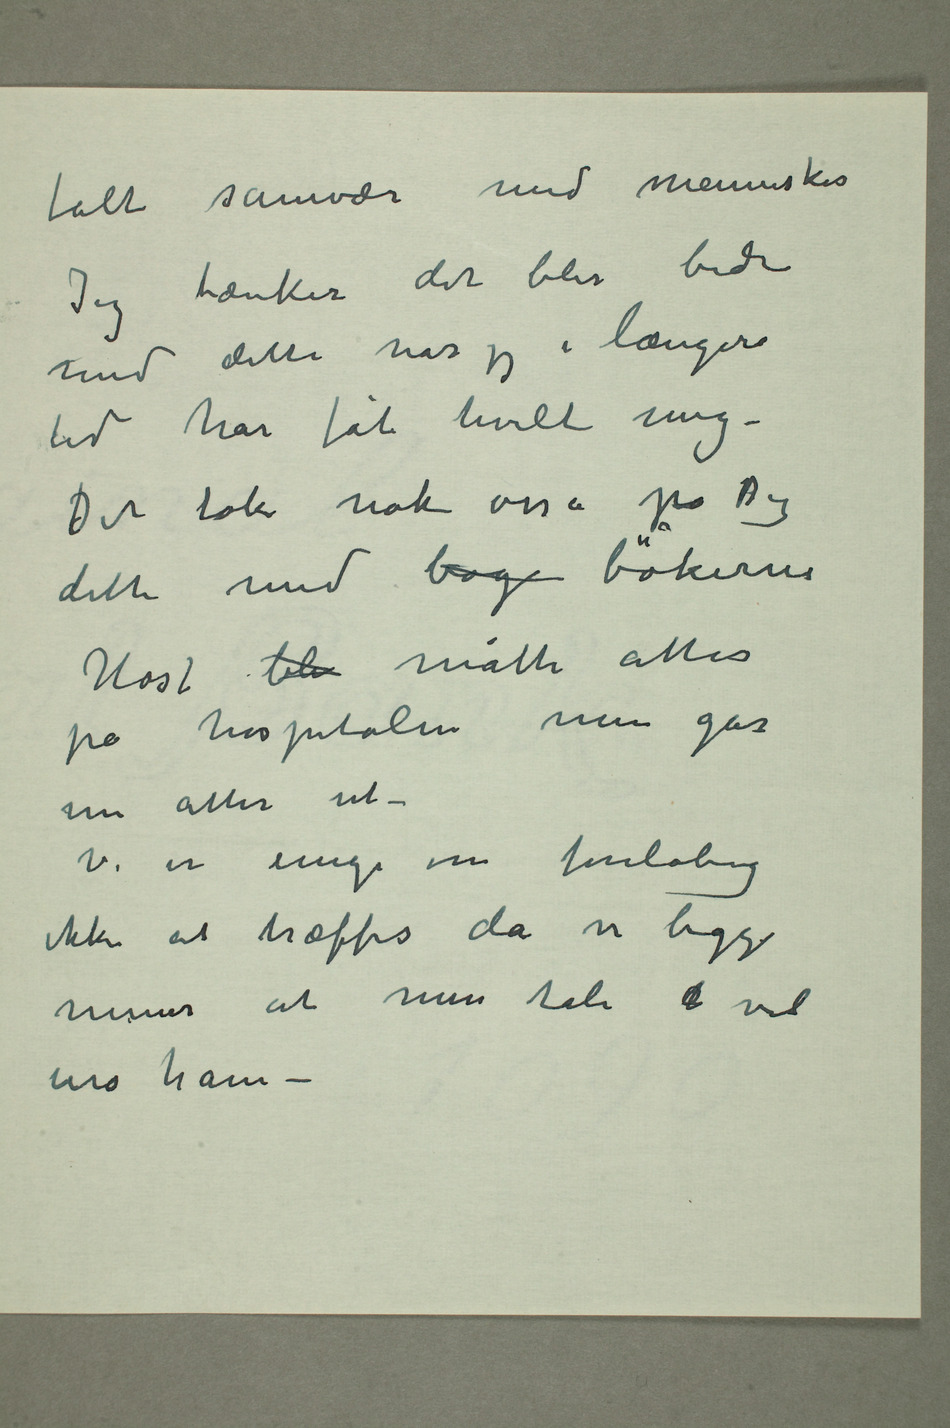 tålt samvær med mennesker
Jeg tænker det blir bedre
med dette når jeg i længere
tid har fåt hvilt mig –
Det tok nok osså på Dig
dette med bøge bökerne
Høst ble måtte atter
på hospitalen men går
nu atter ut –
Vi er enige om foreløbig
ikke at træffes da vi begge
mener at min tale vil
uro ham –